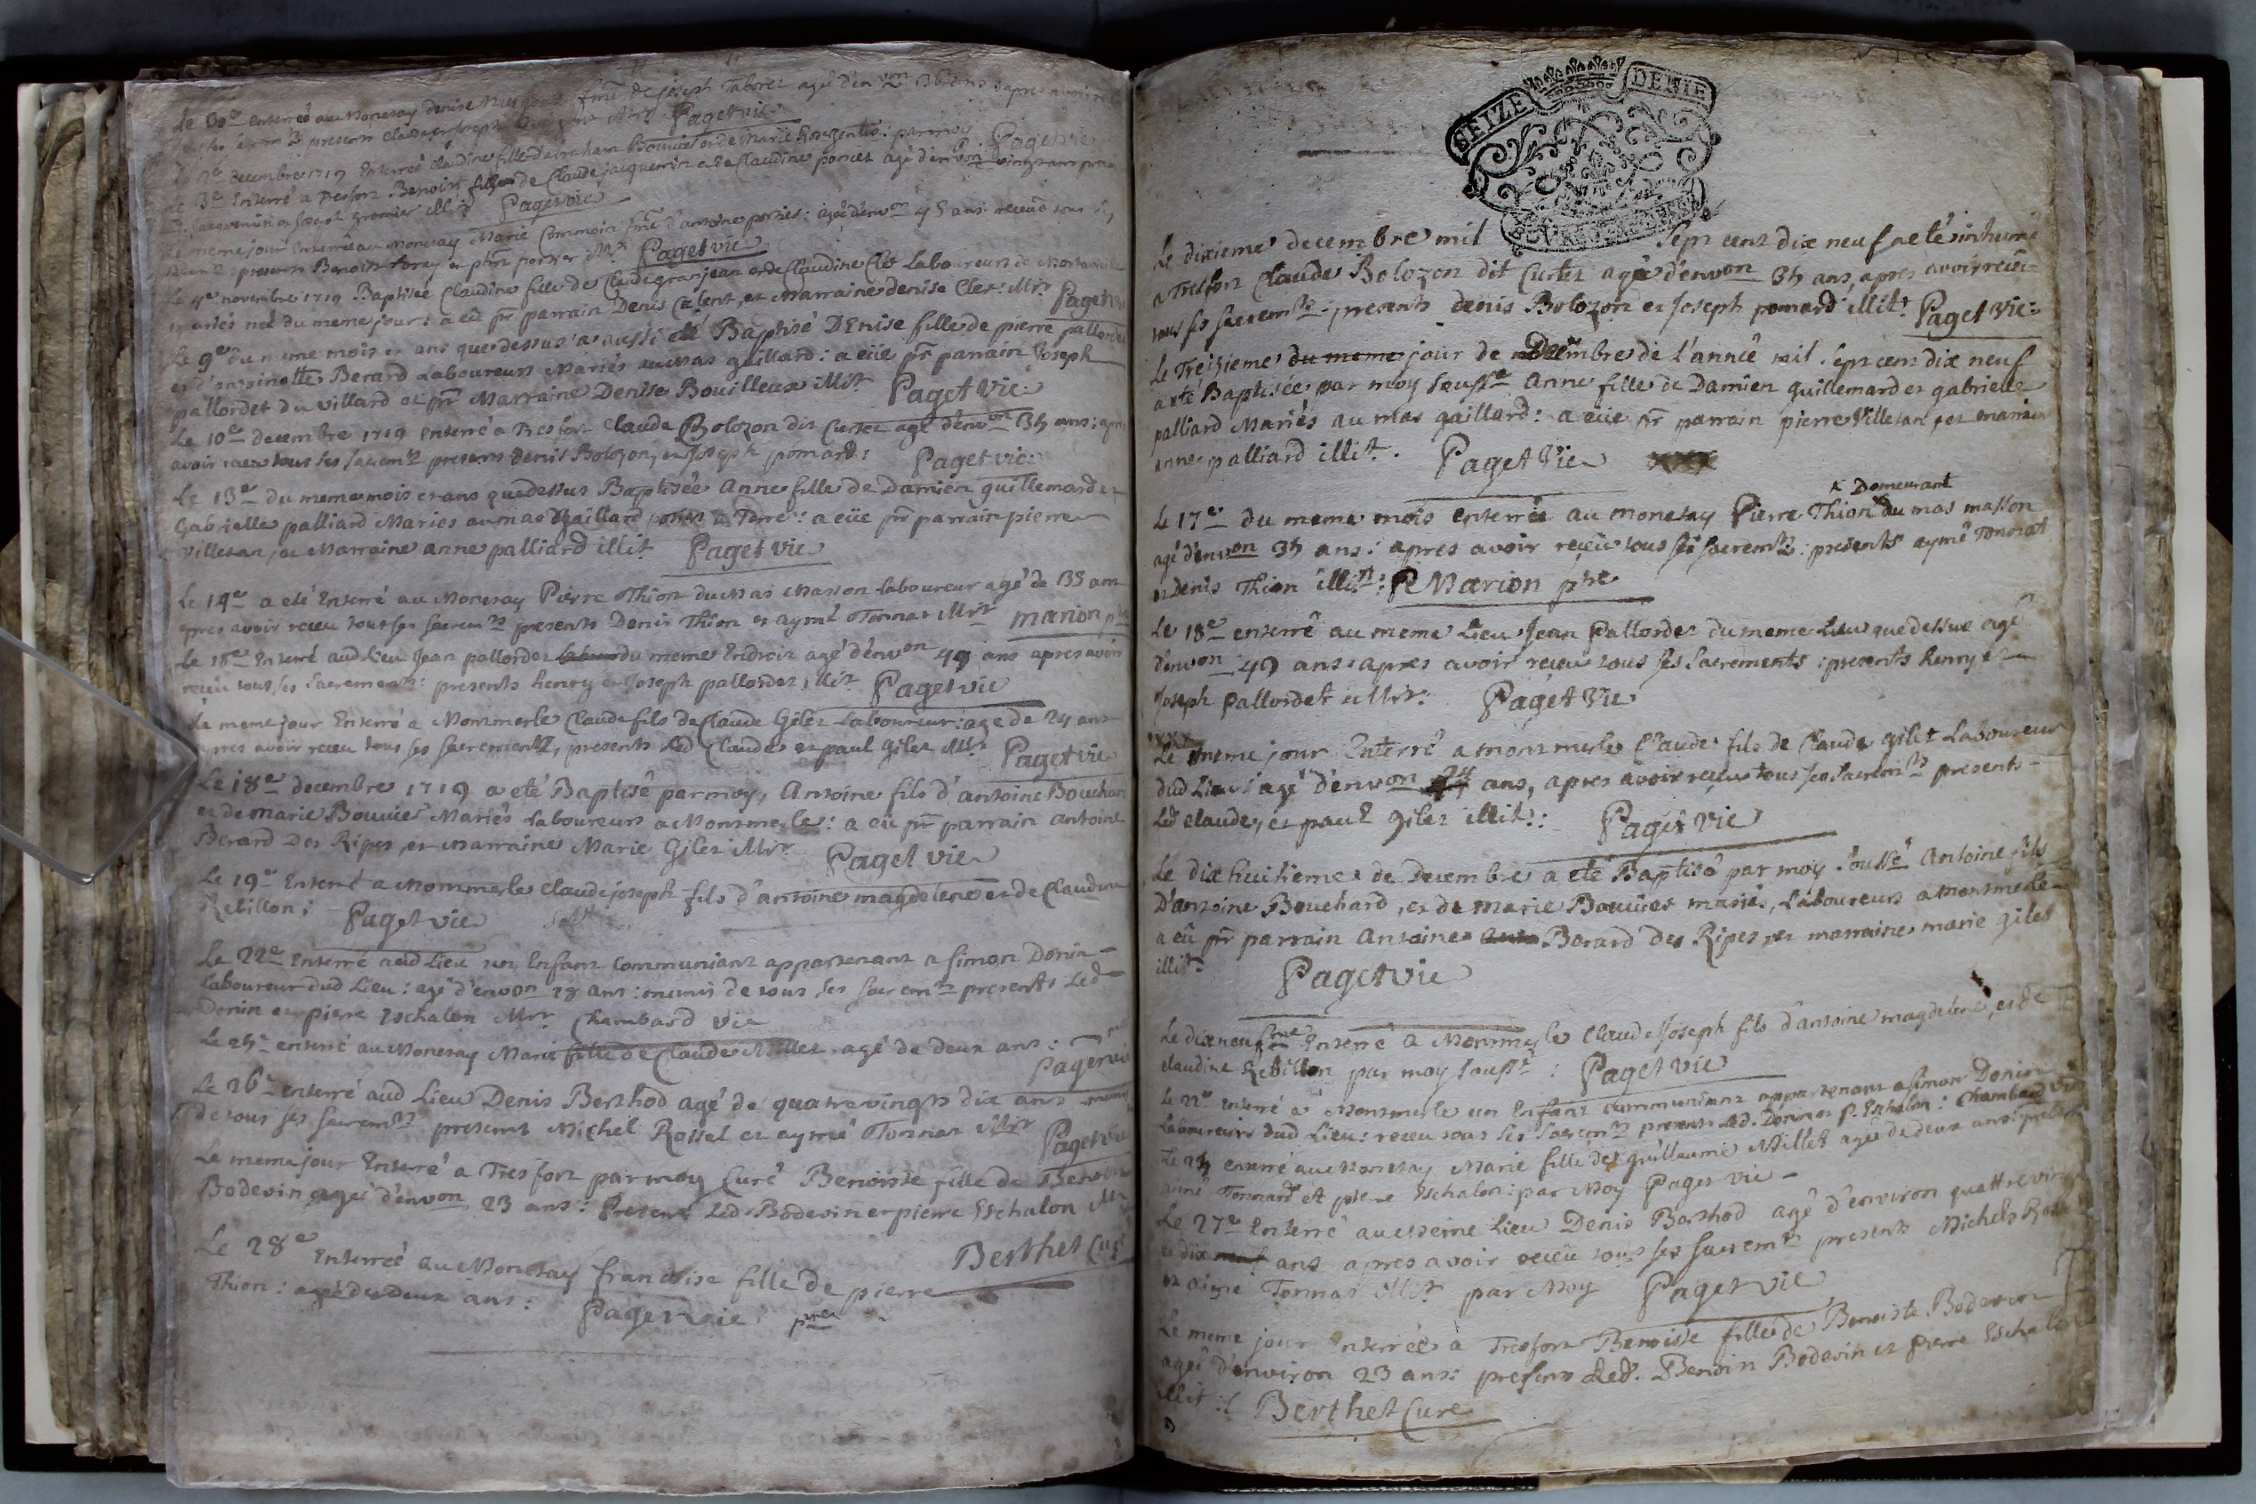 Le 30e enterrée au Monetay denise fme de Joseph Taboret agé d'envon 36 ans apres avoir
presents Claude et Joseph Paget vic
Le 2e decembre 1719 Enterré Claudine fille de Bouvier et de Marie par moy Paget vic
Le 3e Enterré a Tresfort Benoist fils de Claude Jacquemin et de Claudine poncet agé d'envon vingt ans
Jacquemin et Joseph grenier illit Paget vic
Le meme jour Enterrée au Monetay Marie Commoin fme d'antoine portier : agée d'envon 45 ans receu tous
presents Benoist et portier illit Paget vic
Le 4e novembre 1719 Baptisée Claudine fille de Claude granjean et de Claudine Clet Laboureurs de
mariés née du meme jour : a eû pr parrain Denis Calent, et Marraine denise Clet illit Paget vic
Le 9e du meme mois et ans que dessus a aussi eté Baptisé Denise fille de pierre pallordet
et d'antoinette Berard Laboureurs Mariés au mas gaillard : a eüe pr parrain Joseph
pallordet du villard et pr Marraine Denise Bouilleux illit Paget Vic
Le 10e decembre 1719 enterré a Tresfort Claude Bolozon dit Curtet agé d'envon 34 ans : apres
avoir receu tous ses sacemts presents Denis Bolozon, et Joseph pomard : Paget vic
Le 13e du meme mois et ans que dessus Baptisée Anne fille de Damien guillemard et
Gabrielle palliard Mariés au mas Gaillard : a eüe pr parrain pierre
Villetan, et Marraine anne palliard illit Paget vic
Le 14e a eté Enterré au Monetay Pierre Thion du Mas Masson laboureur agé de 35 ans
apres avoir receu tous ses sacemts presents Denis Thion et aymé Tonnat illit marion ptre
Le 18e Enterré aud Lieu Jean pallordet du meme Endroit agé d'envon 49 ans apres avoir
receu tous ses sacrements : presents henry et Joseph pallordet, illit Paget vic
Le meme jour Enterré a Montmerle Claude fils de Claude Gilet Laboureur : agé de 24 ans
apres avoir receu tous ses sacrements, presents Led Claude et paul Gilet illit Paget vic
Le 18e decembre 1719 a eté Baptisé par moy, Antoine fils d'antoine Bouchard
et de marie Bouvier Mariés Laboureurs a Montmerle : a eû pr parrain antoine
Berard Des Ripes, et Marraine Marie Gilet illit Paget vic
Le 19e Enterré a Montmerle Claude joseph fils d'antoine magdelene et de Claudine
Rebillon : Paget vic
Le 22e Enterré aud Lieu un Enfant Communiant appartenant a simon Donin
Laboureur dud Lieu : agé d'envon 18 ans : munis de tous ses sacremts presents Led
Donin et pierre Eschalon illit Chambard vic
Le 24e enterré au Monetay Marie fille de Claude Millet agé de deux ans :
Paget vic
Le 26e enterré aud Lieu Denis Berthod agé de quatrevingts dix ans muni
de tous ses sacremts presents Michel Rossel et aymé Tonnat illit Paget vic
Le meme jour Enterré a Tresfort par moy Curé Benoiste fille de Benoist
Bodevin agée d'envon 23 ans : Presents Led Bodevin et pierre Eschalon illit
Berthet Curé
Le 28e Enterrée au Monetay francoise fille de pierre
Thion : agée de deux ans : Paget vic ptre
SEIZE DENIE
Le dixieme decembre mil sept cent dix neuf a eté inhumé
a Tresfort Claude Bolozon dit Curtet agé d'envon 34 ans, apres avoir receu
tous ses sacremts : presents denis Bolozon et Joseph pomard illit Paget Vic
Le Treizieme du meme jour de Decembre de l'année mil sept cent dix neuf
a eté Baptisée par moy soussé Anne fille de Damien guillemard et gabrielle
palliard Mariés au mas gaillard : a eüe pr parrain pierre Villetan, et marraine
anne palliard illit. Paget Vic xxx
x Demeurant
Le 17e du meme mois enterré au monetay Pierre Thion x du mas masson
agé d'envon 34 ans : apres avoir receu tous ses sacremts : presents aymé Tonnat
et Denis Thion illit : P Marion ptre
Le 18e enterré au meme Lieu Jean Pallordet du meme Lieu que dessus agé
d'envon 49 ans apres avoir receu tous ses sacrements : presents henry et
Joseph Pallordet illit : Paget Vic
Le meme jour Enterré a montmerle Claude fils de Claude gilet Laboureur
dud Lieu : agé d'envon 24 ans, apres avoir receu tous ses sacremts presents
Led Claude, et paul Gilet illit : Paget Vic
Le dix huitieme de Decembre a eté Baptisé par moy soussé Antoine fils
D'antoine Bouchard, et de Marie Bouvier mariés, Laboureurs a montmerle
a eû pr parrain Antoine Berard des Ripes, et marraine marie gilet
illit. Paget vic
Le dix neufieme Enterré a Montmerle Claude Joseph fils d'antoine magdelene, et de
claudine Rebillon par moy soussé : Paget vic
Le 22e Enterré a Montmerle un Enfant communiant appartenant a simon Donin
Laboureurs dud Lieu : receu tous ses sacremts presents led. Donin et P. Eschalon : Chambard vic
Le 24 enterré au Monetay Marie fille de guillaume Millet agée de deux ans : presents
aimé Tonnard et piere Eschalon : par Moy Paget vic
Le 27e Enterré au Meme Lieu Denis Berthod agé d'environ quattrevingt
et dix ans apres avoir receu tous ses sacremts presents Michel Rossel
et aimé Tonnat illit par Moy Paget vic
Le meme jour enterrée a Tresfort Benoiste fille de Benoiste Bodevin
agée d'environ 23 ans : presents Led. Benoin Bodevin et pierre Eschalon
illit : Berthet Curé